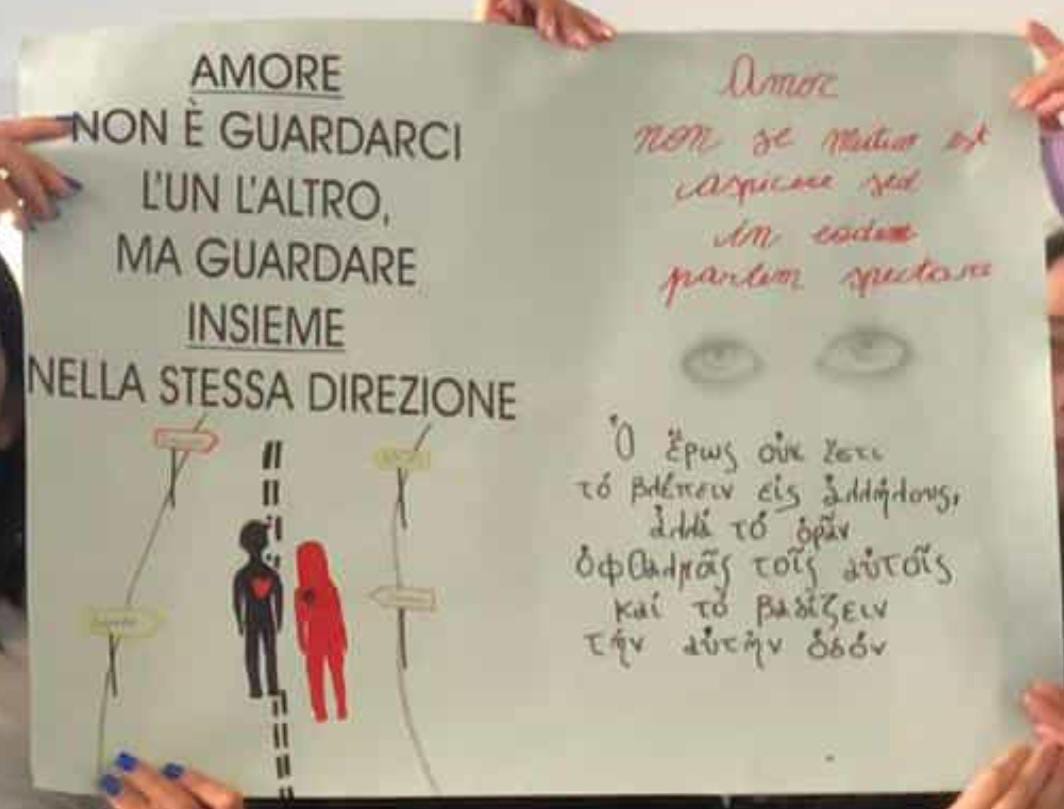 AMORE
NON È GUARDARCI
L'UN L'ALTRO,
MA GUARDARE
INSIEME
NELLA STESSA DIREZIONE
Amor
non se mutuo est
aspicere sed
in eadem
partem spectare
Ὁ ἔρως οὐκ ἔστι
τό βλέπειν εἰς ἀλλήλους,
ἀλλά τό ὁρᾶν
ὀφθαλμᾶς τοῖς αὐτοῖς
καί τό βαδίζειν
τήν αὐτήν ὁδόν